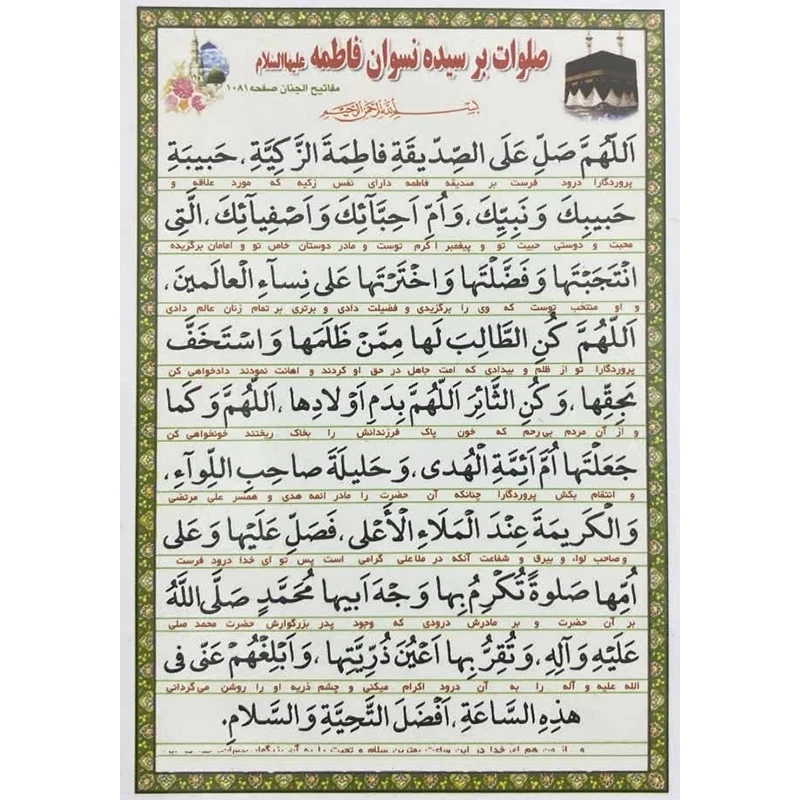 صلوات بر سیده نسوان فاطمه علیهاالسلام
مفاتیح الجنان صفحه ۱۰۸۱
بسم الله الرحمن الرحیم
اَللّهُمَّ صَلِّ عَلَى الصِّدّيقَةِ فاطِمَةَ الزَّكِيَّةِ، حَبيبَةِ
پروردگارا درود فرست بر صدیقه فاطمه دارای نفس زکیه که مورد علاقه و
حَبيبِكَ وَ نَبِيِّكَ، وَ اُمِّ اَحِبَّآئِكَ وَ اَصْفِيآئِكَ، الَّتِى
محبت و دوستی حبیبت تو و پیغمبر اکرم توست و مادر دوستان خاص تو و امامان برگزیده
انْتَجَبْتَها وَ فَضَّلْتَها وَ اخْتَرْتَها عَلى نِسآءِ الْعالَمينَ،
و او منتخب توست که وی را برگزیدی و فضیلت دادی و برتری بر تمام زنان عالم دادی
اَللّهُمَّ كُنِ الطّالِبَ لَها مِمَّنْ ظَلَمَها وَ اسْتَخَفَّ
پروردگارا تو از ظلم و بیدادی که امت جاهل در حق او کردند و اهانت نمودند دادخواهی کن
بِحَقِّها، وَ كُنِ الثّائِرَ اَللّهُمَّ بِدَمِ اَوْلادِها، اَللّهُمَّ وَ كَما
و از آن مردم بی‌رحم که خون پاک فرزندانش را بخاک ریختند خونخواهی کن
جَعَلْتَها اُمَّ اَئِمَّةِ الْهُدى، وَ حَليلَةَ صاحِبِ اللِّوآءِ،
و انتقام بکش پروردگارا چنانکه آن حضرت را مادر ائمه هدی و همسر علی مرتضی
وَ الْكَريمَةَ عِنْدَ الْمَلَاءِ الْأَعْلى، فَصَلِّ عَلَيْها وَ عَلى
و صاحب لواء و بیرق و شفاعت آنکه در ملاعلی گرامی است پس تو ای خدا درود فرست
اُمِّها صَلوةً تُكْرِمُ بِها وَجْهَ اَبيها مُحَمَّدٍ صَلَّى اللّهُ
بر آن حضرت و بر مادرش درودی که وجود پدر بزرگوارش حضرت محمد صلی
عَلَيْهِ وَ آلِهِ، وَ تُقِرُّ بِها اَعْيُنَ ذُرِّيَّتِها، وَ اَبْلِغْهُمْ عَنّى فى
الله علیه و آله را به آن درود اکرام میکنی و چشم ذریه او را روشن می‌گردانی
هذِهِ السّاعَةِ، اَفْضَلَ التَّحِيَّةِ وَ السَّلامِ.
و از من هم ای خدا در این ساعت بهترین سلام و تحیت را به آن بزرگوار